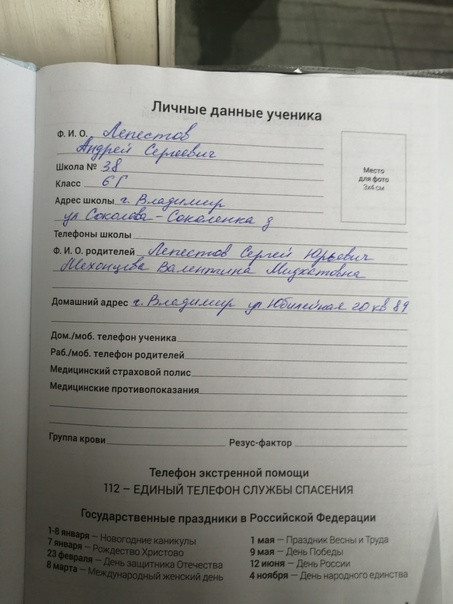 Личные данные ученика
Ф. И. О. Лепестов
Андрей Сергеевич
Школа № 38
Класс 6 Г
Адрес школы г. Владимир
ул Соколова-Соколенка
Телефоны школы
Ф. И. О. родителей Лепестов Сергей Юрьевич
Валентина
Домашний адрес г. Владимир ул. Юбилейная 20 кв 89
Дом./моб. телефон ученика
Раб./моб. телефон родителей
Медицинский страховой полис
Медицинские противопоказания
Группа крови Резус-фактор
Место
для фото
3х4 см
Телефон экстренной помощи
112 – ЕДИНЫЙ ТЕЛЕФОН СЛУЖБЫ СПАСЕНИЯ
Государственные праздники в Российской Федерации
1-8 января — Новогодние каникулы
7 января — Рождество Христово
23 февраля — День защитника Отечества
8 марта — Международный женский день
1 мая — Праздник Весны и Труда
9 мая — День Победы
12 июня — День России
4 ноября — День народного единства